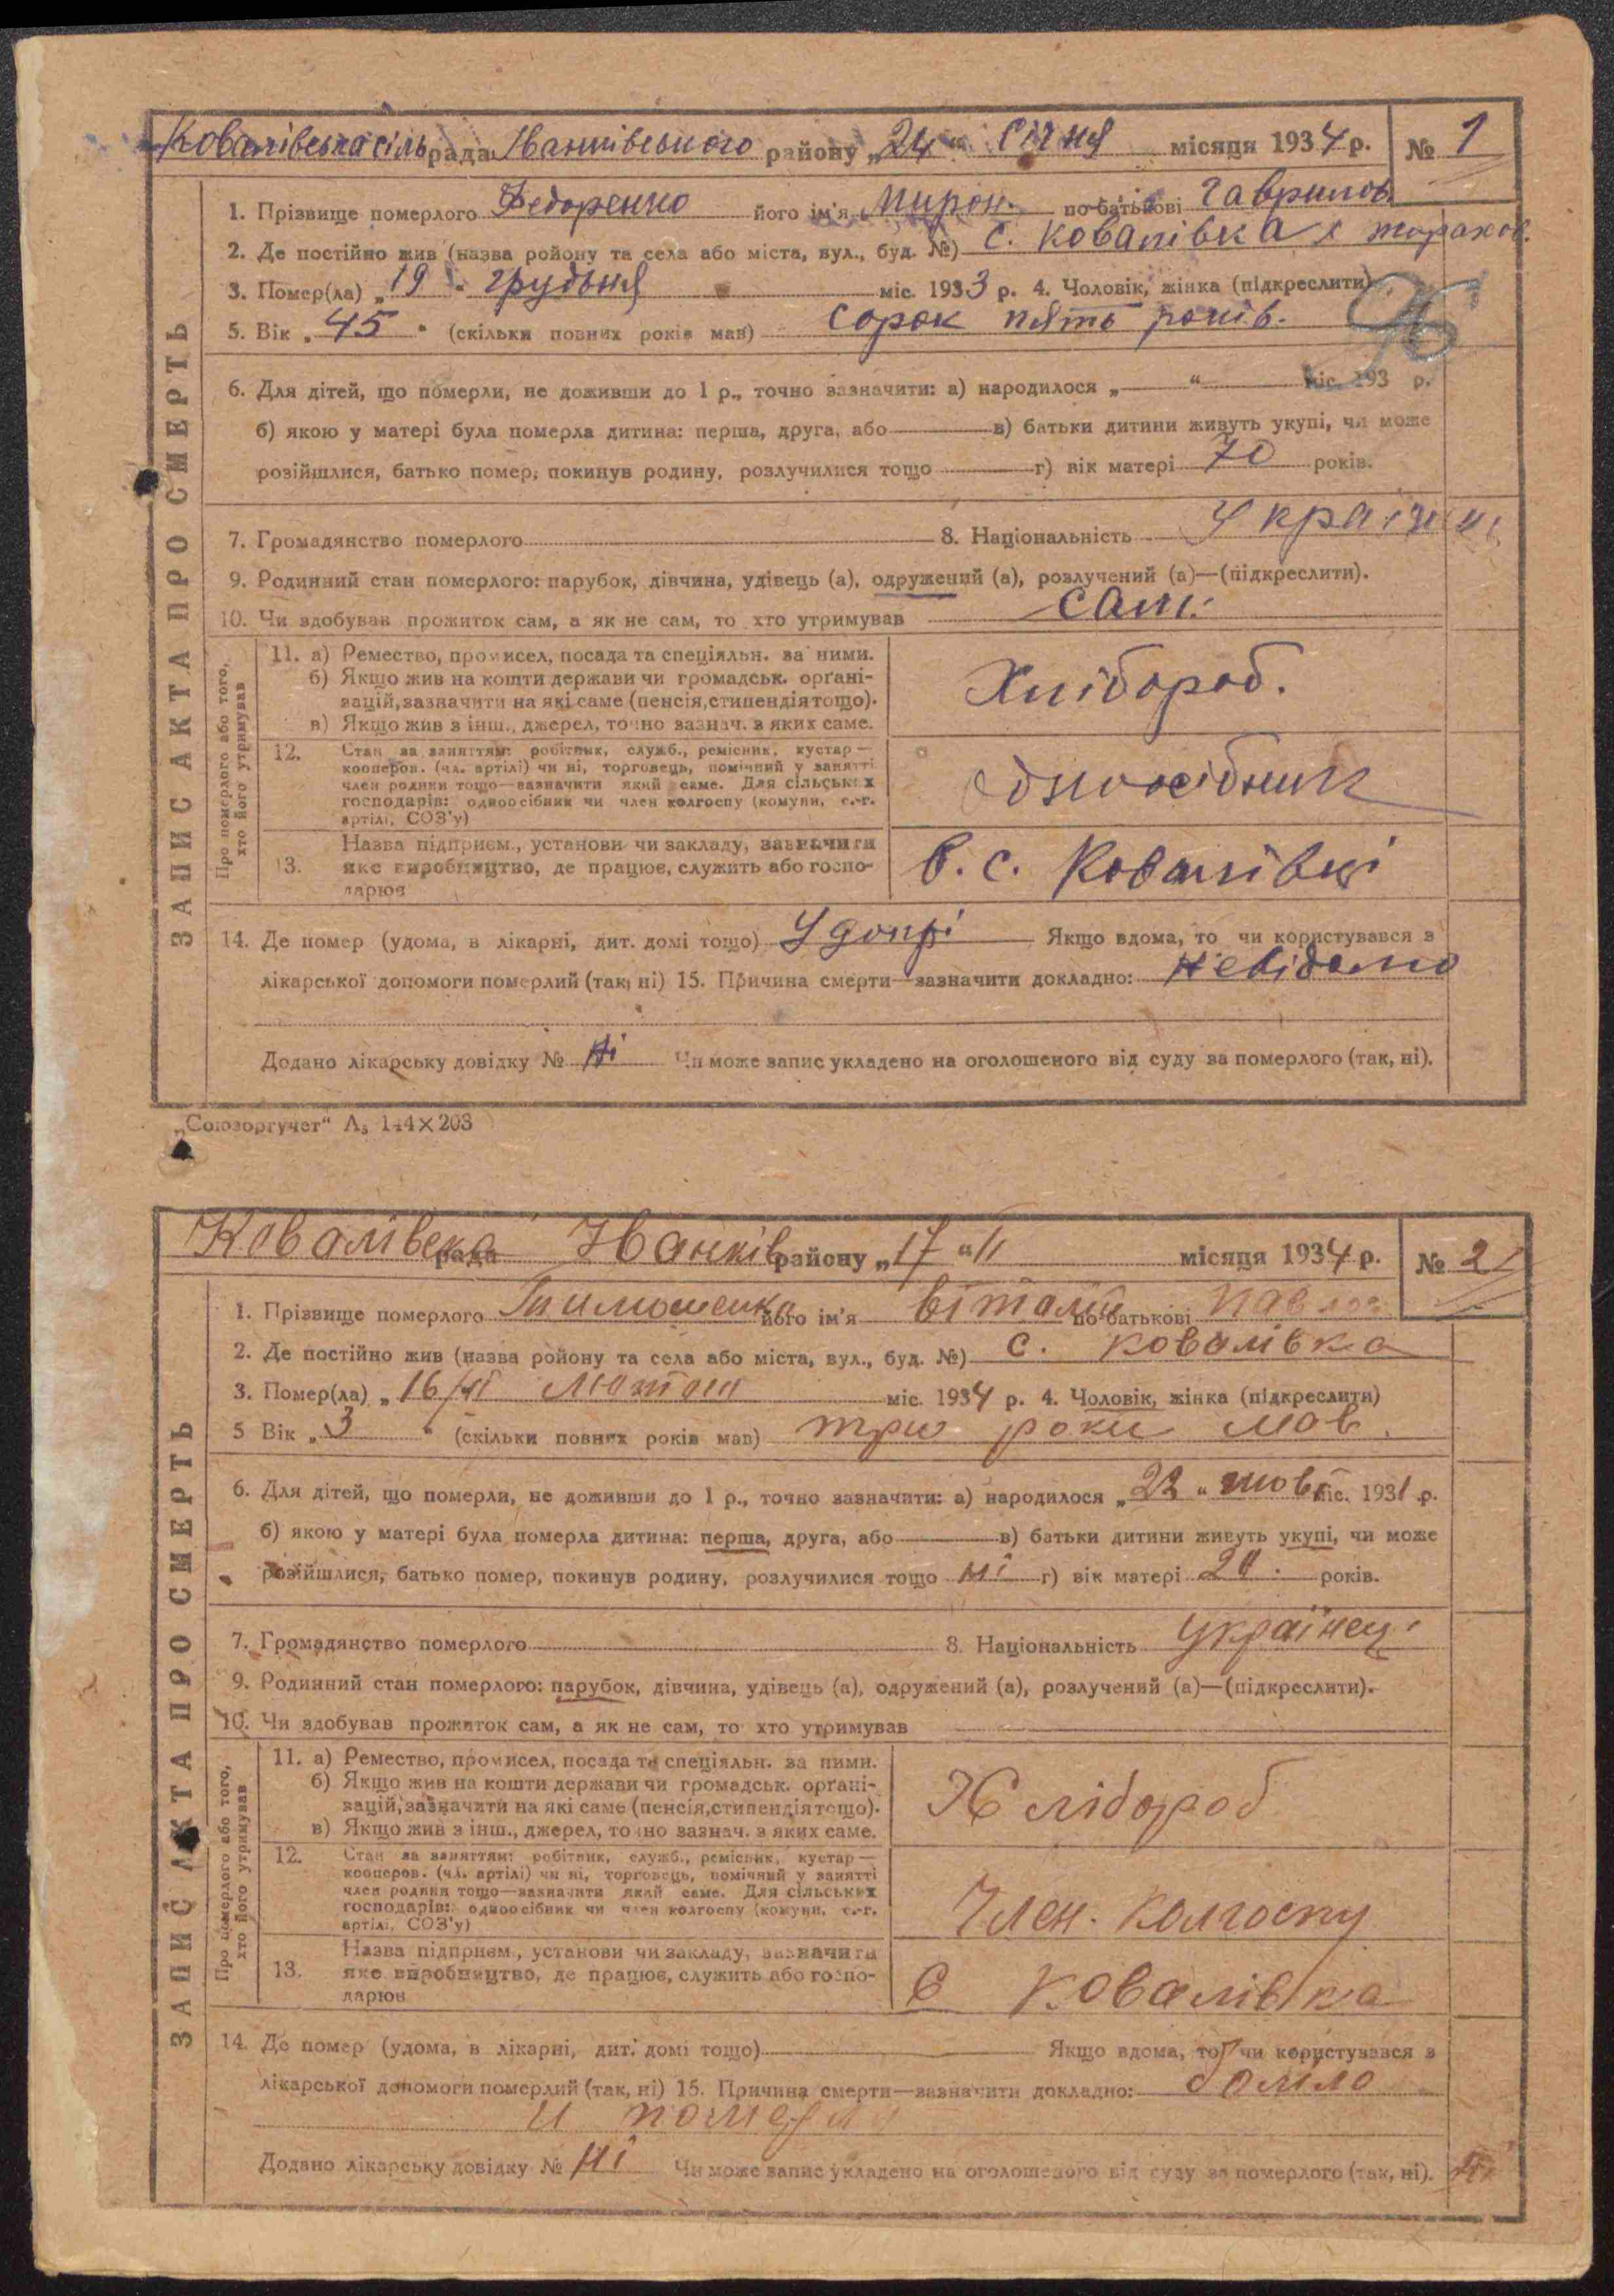 Ковалівська сіль рада Іванківського району „24“ січня місяця 1934 р. № 1
1. Прізвище померлого Федоренко його ім'я Мирон по-батькові Гаврилов
2. Де постійно жив (назва району та села або міста, вул., буд. №) с. Ковалівка х
3. Помер(ла) „19“ грудьня міс. 1933 р. 4. Чоловік, жінка (підкреслити)
5. Вік „45“ (скільки повних років мав) сорок пять років.
6. Для дітей, що померли, не доживши до 1 р., точно зазначити: а) народилося „ “ міс. 193 р.
б) якою у матері була померла дитина: перша, друга, або в) батьки дитини живуть укупі, чи може
розійшлися, батько помер, покинув родину, розлучилися тощо г) вік матері 70 років.
7. Громадянство померлого 8. Національність
9. Родинний стан померлого: парубок, дівчина, удівець (а), одружений (а), розлучений (а)—(підкреслити).
10. Чи здобував прожиток сам, а як не сам, то хто утримував сам.
ЗАПИС АКТА ПРО СМЕРТЬ
Про померлого або того, хто його утримував
11. а) Ремество, промисел, посада та спеціяльн. за ними.
б) Якщо жив на кошти держави чи громадськ. орґані-
зацій, зазначити на які саме (пенсія, стипендія тощо).
в) Якщо жив з інш., джерел, точно зазнач. з яких саме.
Хлібороб.
12. Стан за заняттям: робітник, служб., ремісник, кустар—
кооперов. (чл. артілі) чи ні, торговець, помічний у занятті
член родини тощо—зазначити який саме. Для сільських
господарів: одноосібник чи член колгоспу (комуни, с.-г.
артілі, СОЗ'у)
Одноосібник
13. Назва підприєм., установи чи закладу, зазначити
яке виробництво, де працює, служить або госпо-
дарює
в. с. Ковалівці
14. Де помер (удома, в лікарні, дит. домі тощо) Якщо вдома, то чи користувався з
лікарської допомоги померлий (так, ні) 15. Причина смерти—зазначити докладно: невідомо
Додано лікарську довідку № ні Чи може запис укладено на оголошеного від суду за померлого (так, ні).
„Союзоргучет“ А₅ 144×203
Ковалівська рада Іванків району „17“ II місяця 1934 р. № 2
1. Прізвище померлого Тимошенко його ім'я Віталій по-батькові Павлов
2. Де постійно жив (назва району та села або міста, вул., буд. №) с. Ковалівка
3. Помер(ла) „16/II міс. 1934 р. 4. Чоловік, жінка (підкреслити)
5 Вік „3“ (скільки повних років мав) три роки мав.
6. Для дітей, що померли, не доживши до 1 р., точно зазначити: а) народилося „22“ жовт міс. 1931 р.
б) якою у матері була померла дитина: перша, друга, або в) батьки дитини живуть укупі, чи може
розійшлися, батько помер, покинув родину, розлучилися тощо ні г) вік матері років.
7. Громадянство померлого 8. Національність українець
9. Родинний стан померлого: парубок, дівчина, удівець (а), одружений (а), розлучений (а)—(підкреслити).
10. Чи здобував прожиток сам, а як не сам, то хто утримував
ЗАПИС АКТА ПРО СМЕРТЬ
Про померлого або того, хто його утримував
11. а) Ремество, промисел, посада та спеціяльн. за ними.
б) Якщо жив на кошти держави чи громадськ. орґані-
зацій, зазначити на які саме (пенсія, стипендія тощо).
в) Якщо жив з інш., джерел, точно зазнач. з яких саме.
Хлібороб
12. Стан за заняттям: робітник, служб., ремісник, кустар—
кооперов. (чл. артілі) чи ні, торговець, помічний у занятті
член родини тощо—зазначити який саме. Для сільських
господарів: одноосібник чи член колгоспу (комуни, с.-г.
артілі, СОЗ'у)
Член. Колгоспу
13. Назва підприєм., установи чи закладу, зазначити
яке виробництво, де працює, служить або госпо-
дарює
С Ковалівка
14. Де помер (удома, в лікарні, дит. домі тощо) Якщо вдома, то чи користувався з
лікарської допомоги померлий (так, ні) 15. Причина смерти—зазначити докладно: боліло
и
Додано лікарську довідку № ні Чи може запис укладено на оголошеного від суду за померлого (так, ні).